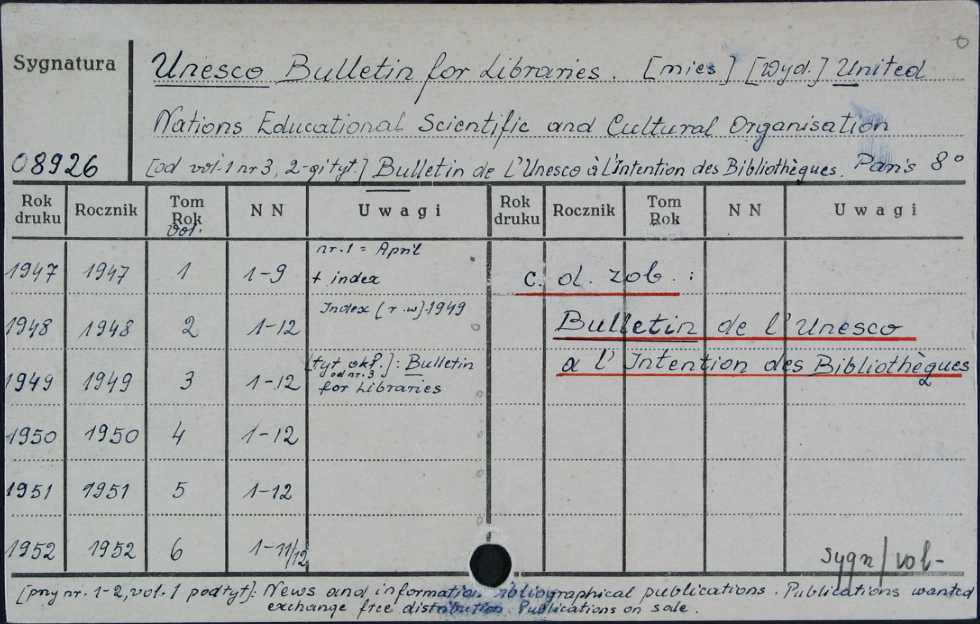 Sygnatura
Unesco Bulletin for Libraries. [mies] [Wyd.] United
Nations Educational Scientific and Cultural Organisation
08926 [od vol. 1 nr 3, 2-gi tyt.] Bulletin de l'Unesco à l'Intention des Bibliothèques. Paris 8°
Rok druku Rocznik Tom Rok vol. NN Uwagi Rok druku Rocznik Tom Rok NN Uwagi
nr. 1 = April
1947 1947 1 1-9 + index c. d. zob. :
Index [r. w] 1949
1948 1948 2 1-12 Bulletin de l'Unesco
[tyt okł. od nr. 3]: Bulletin
à l'Intention des Bibliothèques
1949 1949 3 1-12 for Libraries
1950 1950 4 1-12
1951 1951 5 1-12
1952 1952 6 1-11/12 sygn/vol-
[przy nr. 1-2, vol. 1 podtyt]: News and information bibliographical publications. Publications wanted
exchange free distribution. Publications on sale.